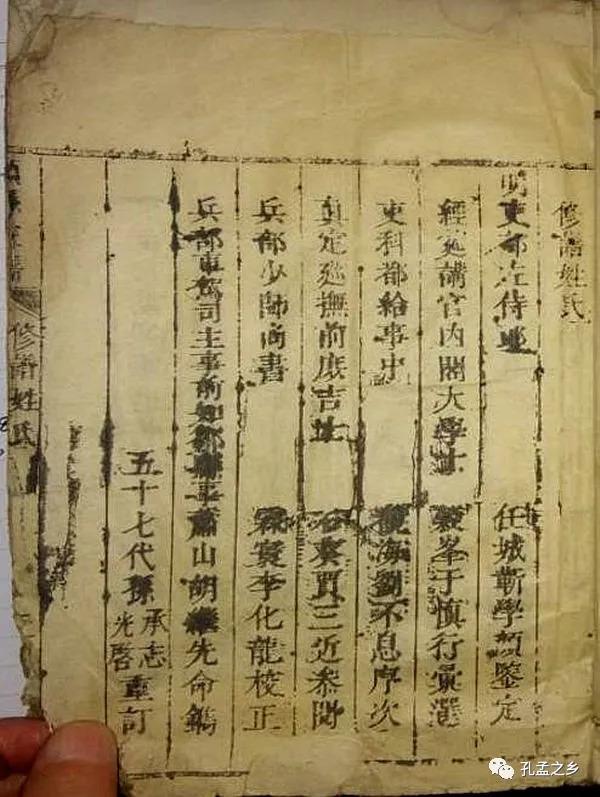 修譜姓氏
明吏部左侍郎 任城靳學顏鑒定
經筵講官內閣大學士 穀峯于慎行彙選
吏科都給事中 海劉不息序次
真定廵撫前庶吉士 石葵賈三近叅閱
兵部少師尚書 霖寰李化龍校正
兵部車駕司主事前知鄒縣事蕭山胡繼先命鐫
五十七代孫 承志 光啓 重訂
修譜姓氏
孔孟之乡